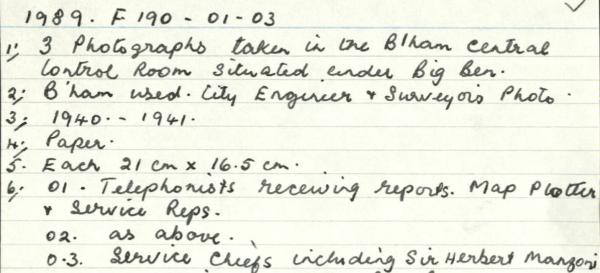 1989. F 190 - 01-03
1; 3 Photographs taken in the B'ham Central
Control Room Situated under Big Ben.
2; B'ham used. City Engineer & Surveyois Photo.
3; 1940. - 1941.
4; Paper.
5. Each 21 cm x 16.5 cm.
6; 01. Telephonists receiving reports. Map Plotter
& Service Reps.
02. as above.
0.3. Service Chiefs including Sir Herbert Manzoni